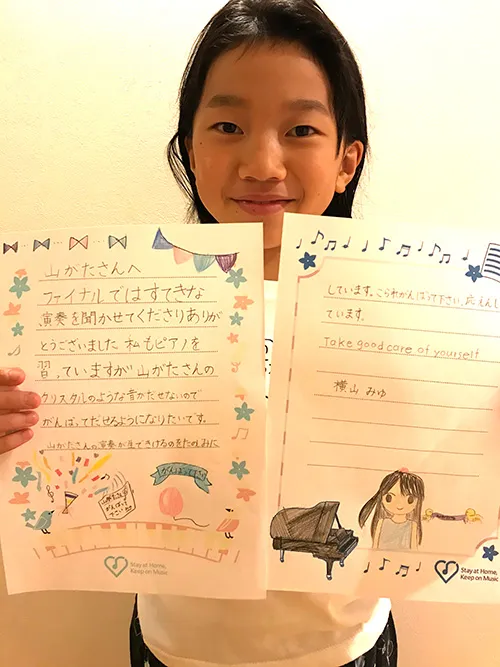 山がたさんへ
ファイナルではすてきな
演奏を聞かせてくださりありが
とうございました 私もピアノを
習っていますが山がたさんの
クリスタルのような音がだせないので
がんばってだせるようになりたいです。
山がたさんの演奏が生できけるのをたのしみに
がんばって
Stay at Home,
Keep on Music
しています。これからもがんばって下さい。応えんし
ています。
Take good care of yourself
横山 みゆ
Stay at Home,
Keep on Music